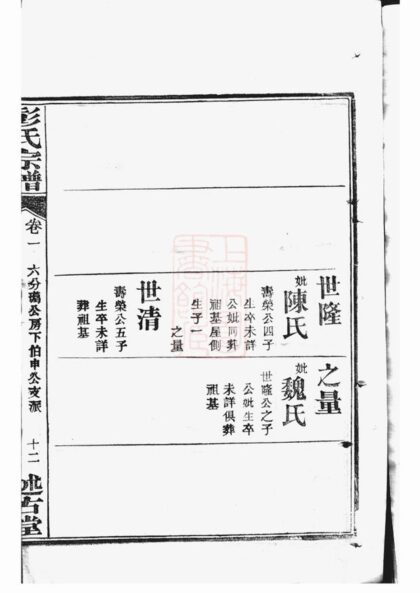 世隆
妣陳氏
壽榮公四子
生卒未詳
公妣同葬
祖墓屋側
生子一
之量
世清
壽榮公五子
生卒未詳
葬祖墓
之量
妣魏氏
世隆公之子
公妣生卒
未詳俱葬
祖墓
彭氏宗譜
卷一
六分瑞公房下伯申公支派
十二
述古堂